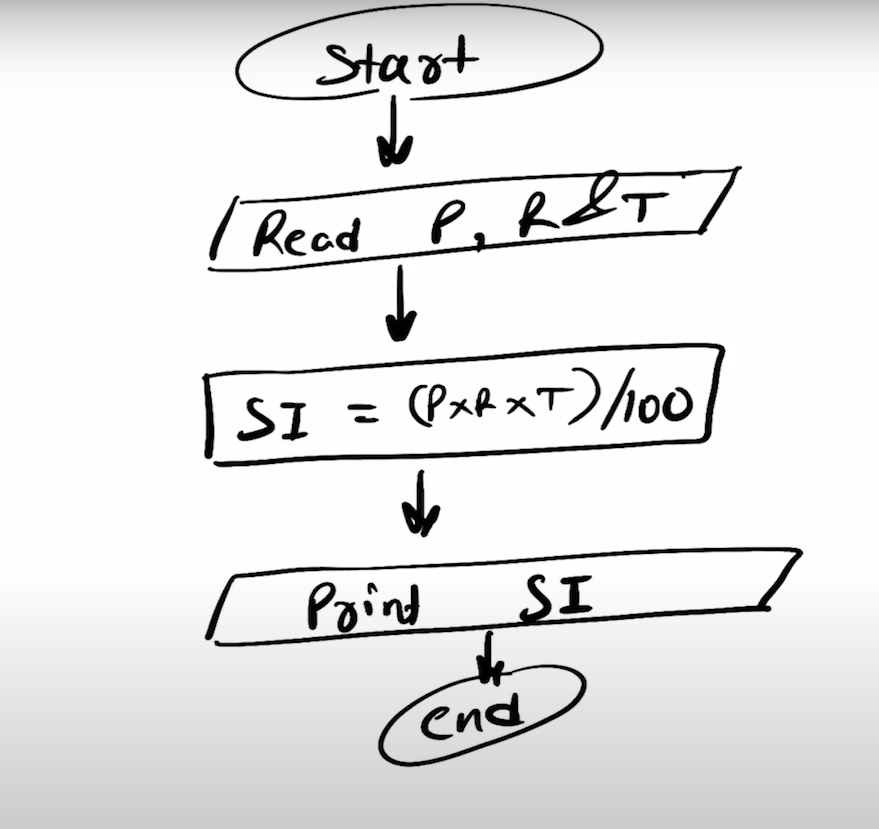 Start
Read P, R & T
SI = (P×R×T)/100
Print SI
end